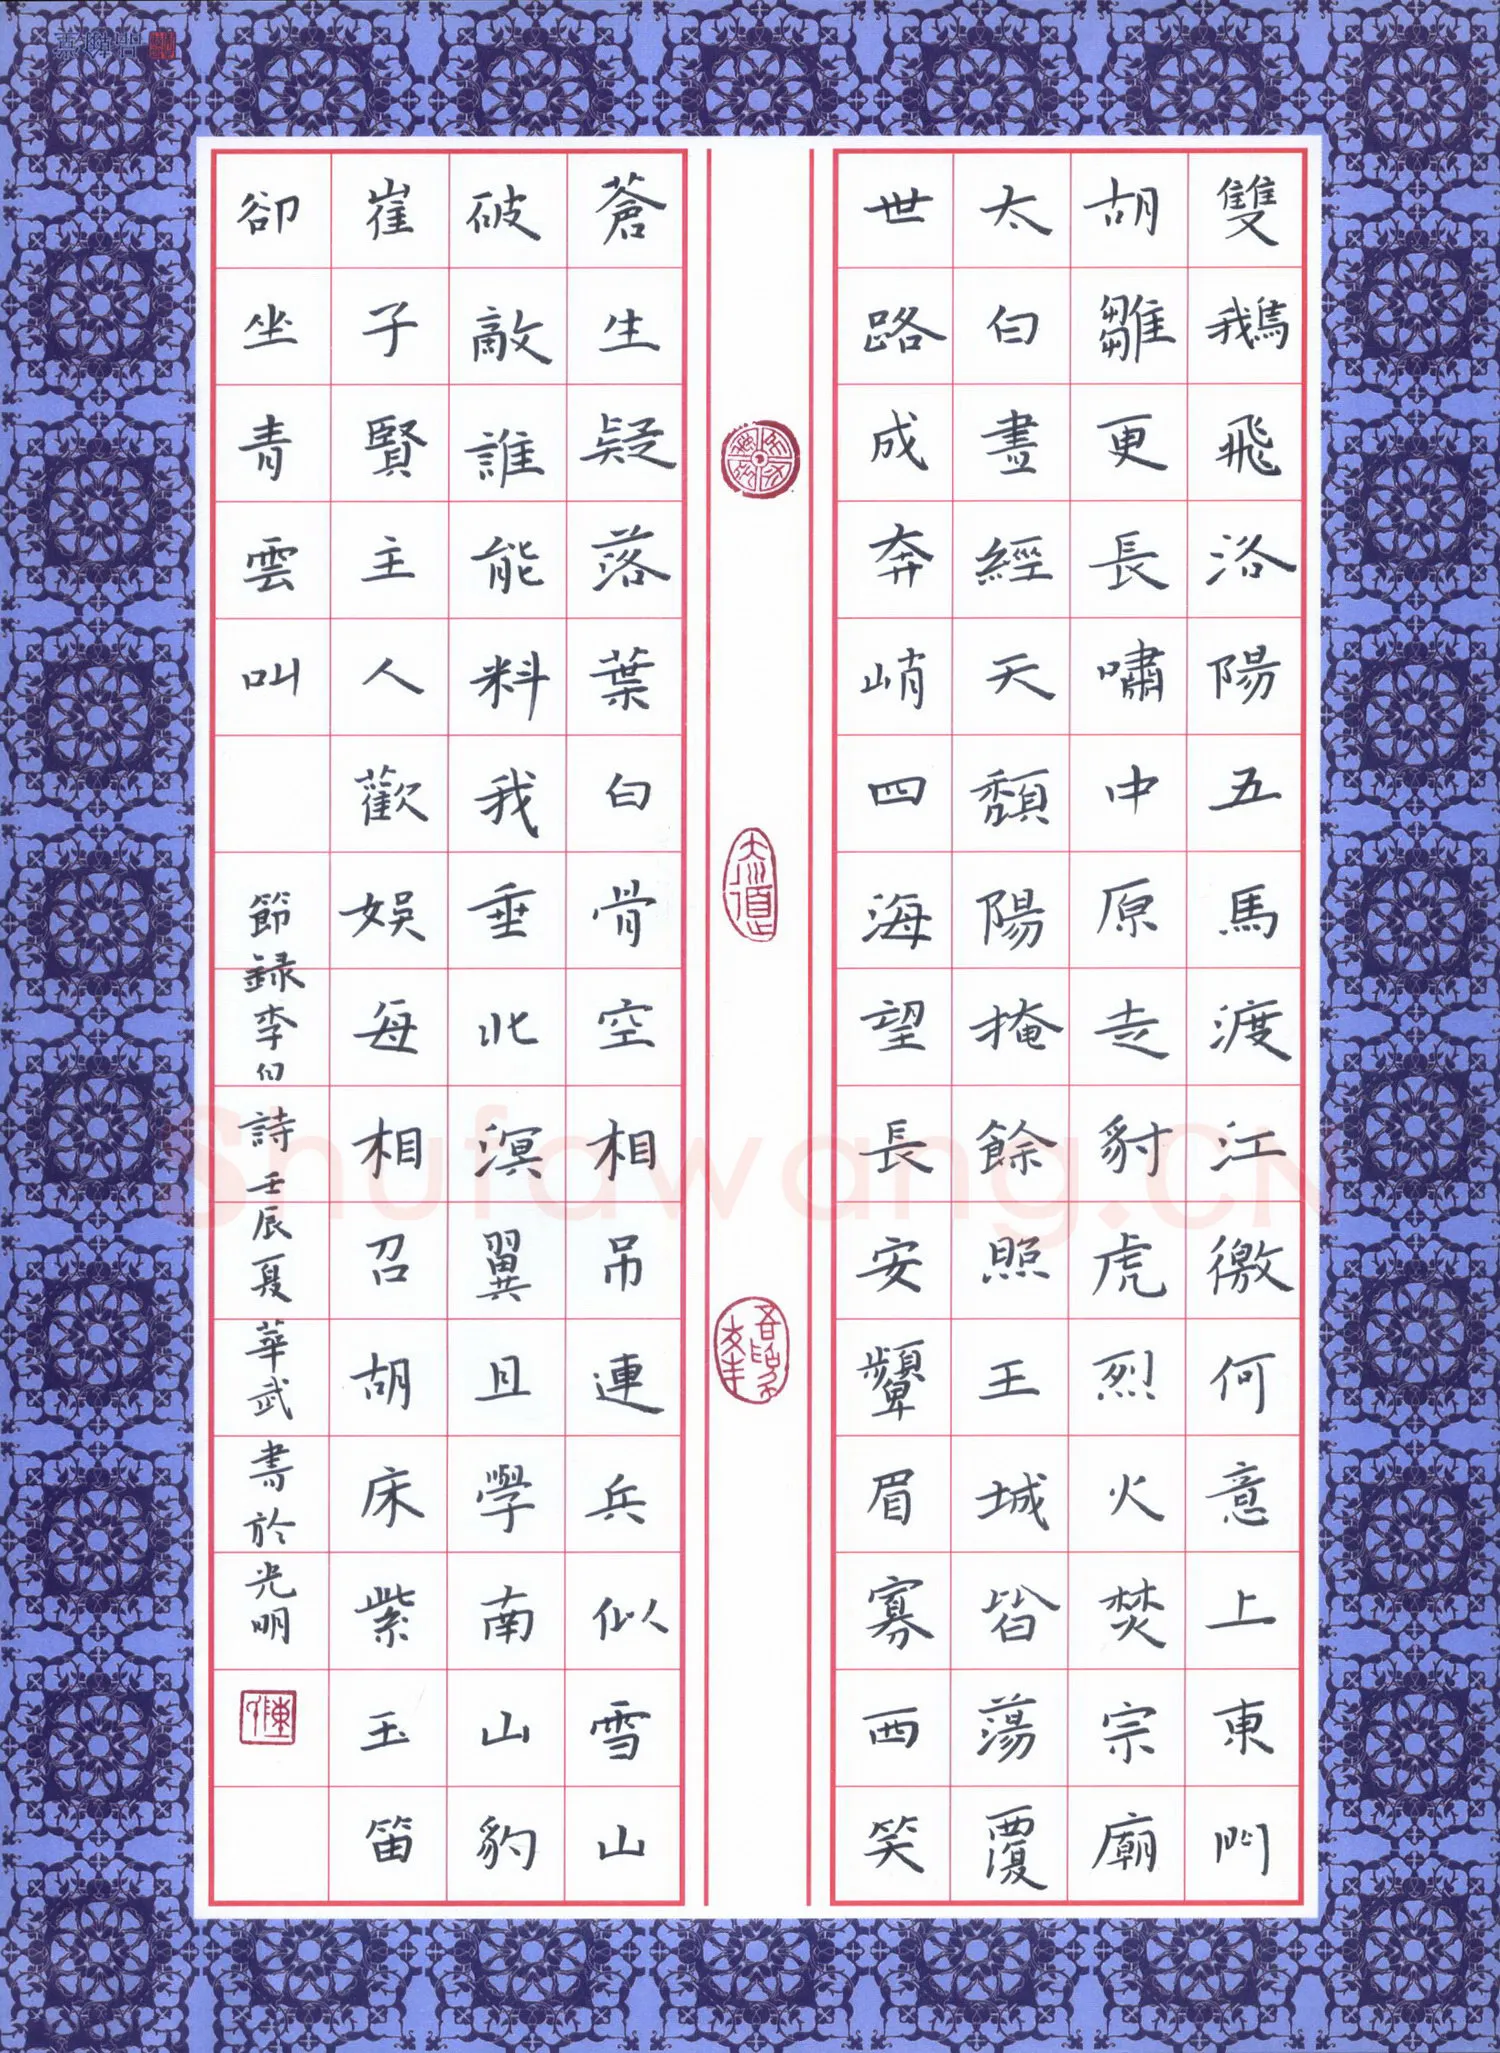 雙鵝飛洛陽五馬渡江徼何意上東門
胡雛更長嘯中原走豺虎烈火焚宗廟
太白晝經天頹陽掩餘照王城皆蕩覆
世路成奔峭四海望長安顰眉寡西笑
蒼生疑落葉白骨空相吊連兵似雪山
破敵誰能料我垂北溟翼且學南山豹
崔子賢主人歡娛每相召胡床紫玉笛
卻坐青雲叫
節録李白詩壬辰夏華武書於光明
Shufawang.CN